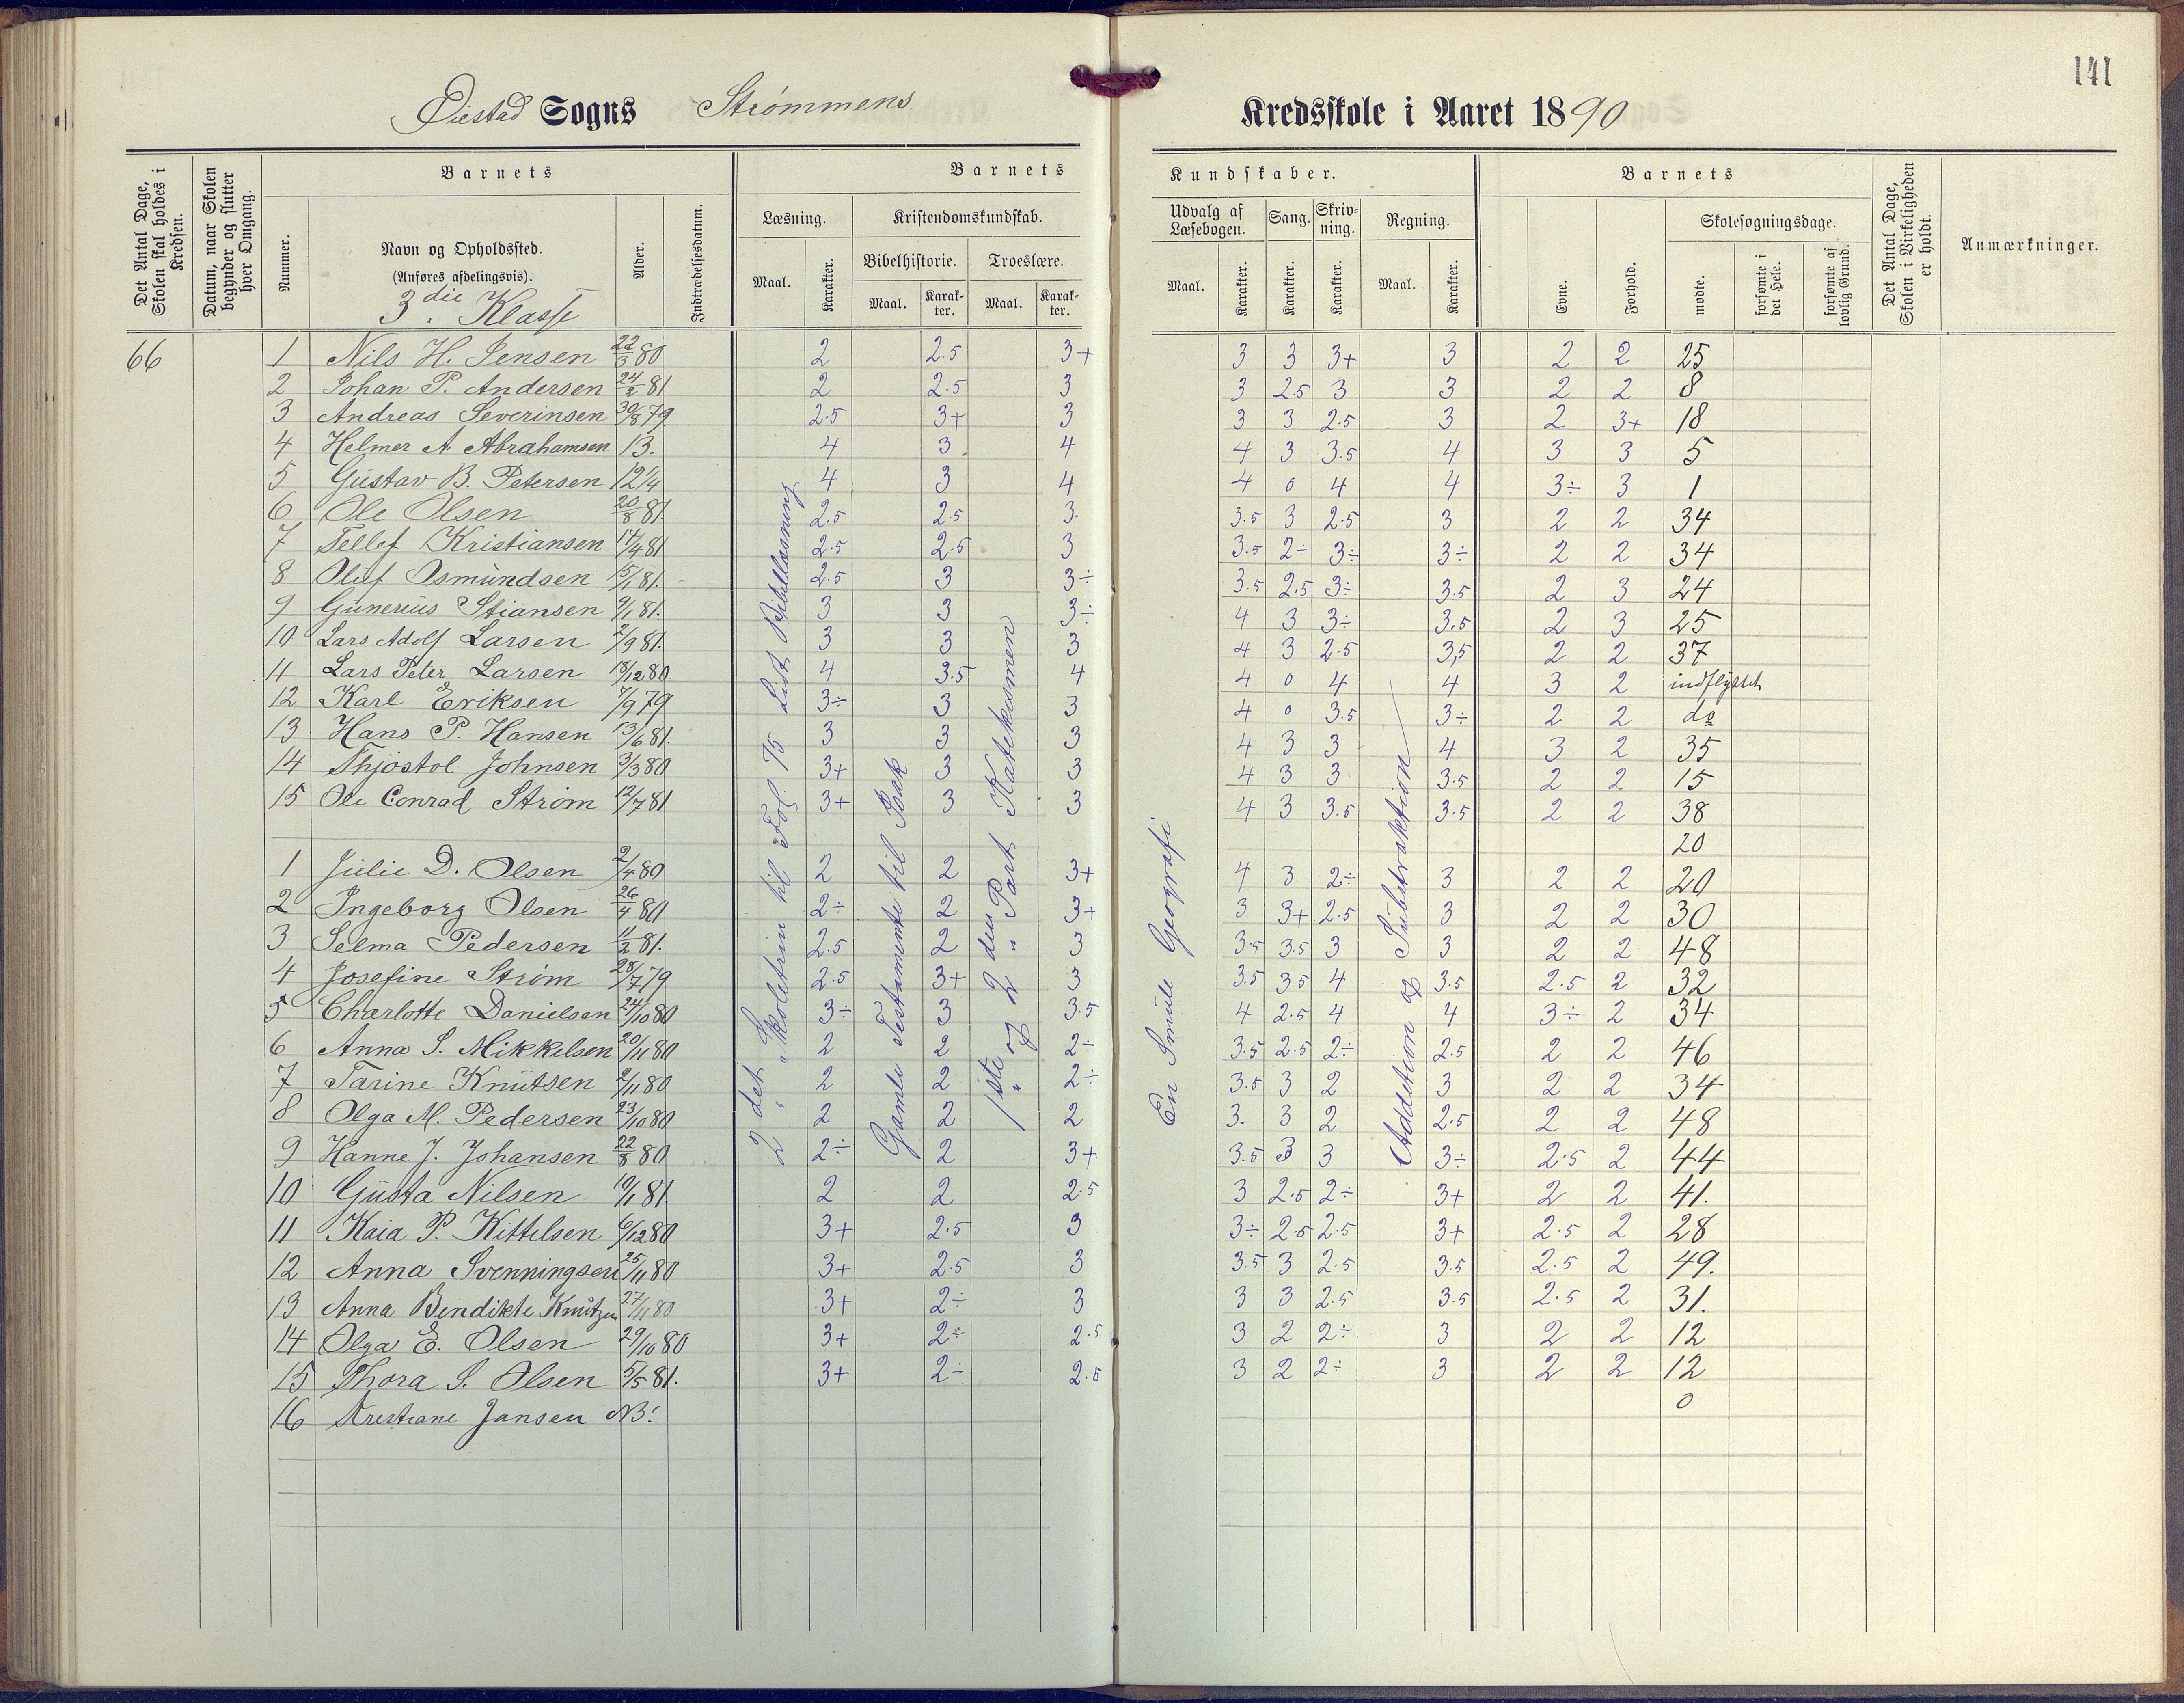 141
Øiestad Sogns Strømmens Kredsskole i Aaret 1890
Det Antal Dage, Skolen skal holdes i Kredsen.
Datum, naar Skolen begynder og slutter hver Omgang.
Barnets
Nummer.
Navn og Opholdssted.
(Anføres afdelingsvis).
3die Klasse
Alder.
Indtrædelsesdatum.
Barnets Kundskaber.
Læsning.
Maal.
Karakter.
Kristendomskundskab.
Bibelhistorie.
Maal.
Karakter.
Troeslære.
Maal.
Karakter.
Udvalg af Læsebogen.
Maal.
Karakter.
Sang.
Karakter.
Skrivning.
Karakter.
Regning.
Maal.
Karakter.
Barnets
Evne.
Forhold.
Skolesøgningsdage.
mødte.
forsømte i det Hele.
forsømte af lovlig Grund.
Det Antal Dage, Skolen i Virkeligheden er holdt.
Anmærkninger.
66
1 Nils H. Jensen 22/3 80 2 2.5 3+ 3 3 3+ 3 2 2 25
2 Johan P. Andersen 24/2 81 2 2.5 3 3 2.5 3 3 2 2 8
3 Andreas Severinsen 30/8 79 2.5 3+ 3 3 3 2.5 3 2 3+ 18
4 Helmer A Abrahamsen 13. 4 3 4 4 3 3.5 4 3 3 5
5 Gustav B. Petersen 12 1/4 4 3 4 4 0 4 4 3÷ 3 1
6 Ole Olsen 20/8 81. 2.5 2.5 3. 3.5 3 2.5 3 2 2 34
7 Tellef Kristiansen 14/4 81 2.5 2.5 3 3.5 2÷ 3÷ 3÷ 2 2 34
8 Oluf Osmundsen 15/1 81. 2.5 3 3÷ 3.5 2.5 3÷ 3.5 2 3 24
9 Gunerius Stiansen 9/1 81. 3 3 3÷ 4 3 3÷ 3.5 2 3 25
10 Lars Adolf Larsen 2/9 81. 3 3 3 4 3 2.5 3,5 2 2 37
11 Lars Peter Larsen 18/12 80. 4 3.5 4 4 0 4 4 3 2 indflyttet
12 Karl Eriksen 7/9 79 3÷ 3 3 4 0 3.5 3÷ 2 2 do
13 Hans P. Hansen 13/6 81. 3 3 3 4 3 3 4 3 2 35
14 Thjøstol Johnsen 3/3 80 3+ 3 3 4 3 3 3.5 2 2 15
15 Ole Conrad Strøm 12/7 81 3+ 3 3 4 3 3.5 3.5 2 2 38
20
1 Julie D. Olsen 2/4 80 2 2 3+ 4 3 2÷ 3 2 2 20
2 Ingeborg Olsen 26/4 80 2÷ 2 3+ 3 3+ 2.5 3 2 2 30
3 Selma Pedersen 11/2 81. 2.5 2 3 3.5 3.5 3 3 2 2 48
4 Josefine Strøm 28/7 79 2.5 3+ 3 3.5 3.5 4 3.5 2.5 2 32
5 Charlotte Danielsen 24/10 80 3÷ 3 3.5 4 2.5 4 4 3÷ 2 34
6 Anna S. Mikkelsen 20/11 80 2 2 2÷ 3.5 2.5 2÷ 2.5 2 2 46
7 Tarine Knutsen 2/11 80 2 2 2÷ 3.5 3 2 3 2 2 34
8 Olga M. Pedersen 23/10 80 2 2 2 3. 3 2 2.5 2 2 48
9 Hanne J. Johansen 22/8 80 2÷ 2 3+ 3.5 3 3 3÷ 2.5 2 44
10 Gusta Nilsen 10/1 81. 2 2 2.5 3 2.5 2÷ 3+ 2 2 41.
11 Kaia P. Kittelsen 6/12 80 3+ 2.5 3 3÷ 2.5 2.5 3+ 2.5 2 28
12 Anna Svenningsen 25/11 80 3+ 2.5 3 3.5 3 2.5 3.5 2.5 2 49.
13 Anna Bendikte Knutzen 27/11 80 3+ 2÷ 3 3 3 2.5 3.5 2.5 2 31.
14 Olga E. Olsen 29/10 80 3+ 2÷ 2.5 3 2 2÷ 3 2 2 12
15 Thora S. Olsen 5/5 81. 3+ 2÷ 2.5 3 2 2÷ 3 2 2 12
16 Kristiane Jansen NB! 0
2det Skoletrin til Fol. 75 Lidt Bibellæsning
Gamle Testamente til Isak
1ste og 2den Part Katekismen
En Smule Geografi
Addition og Subtraktion